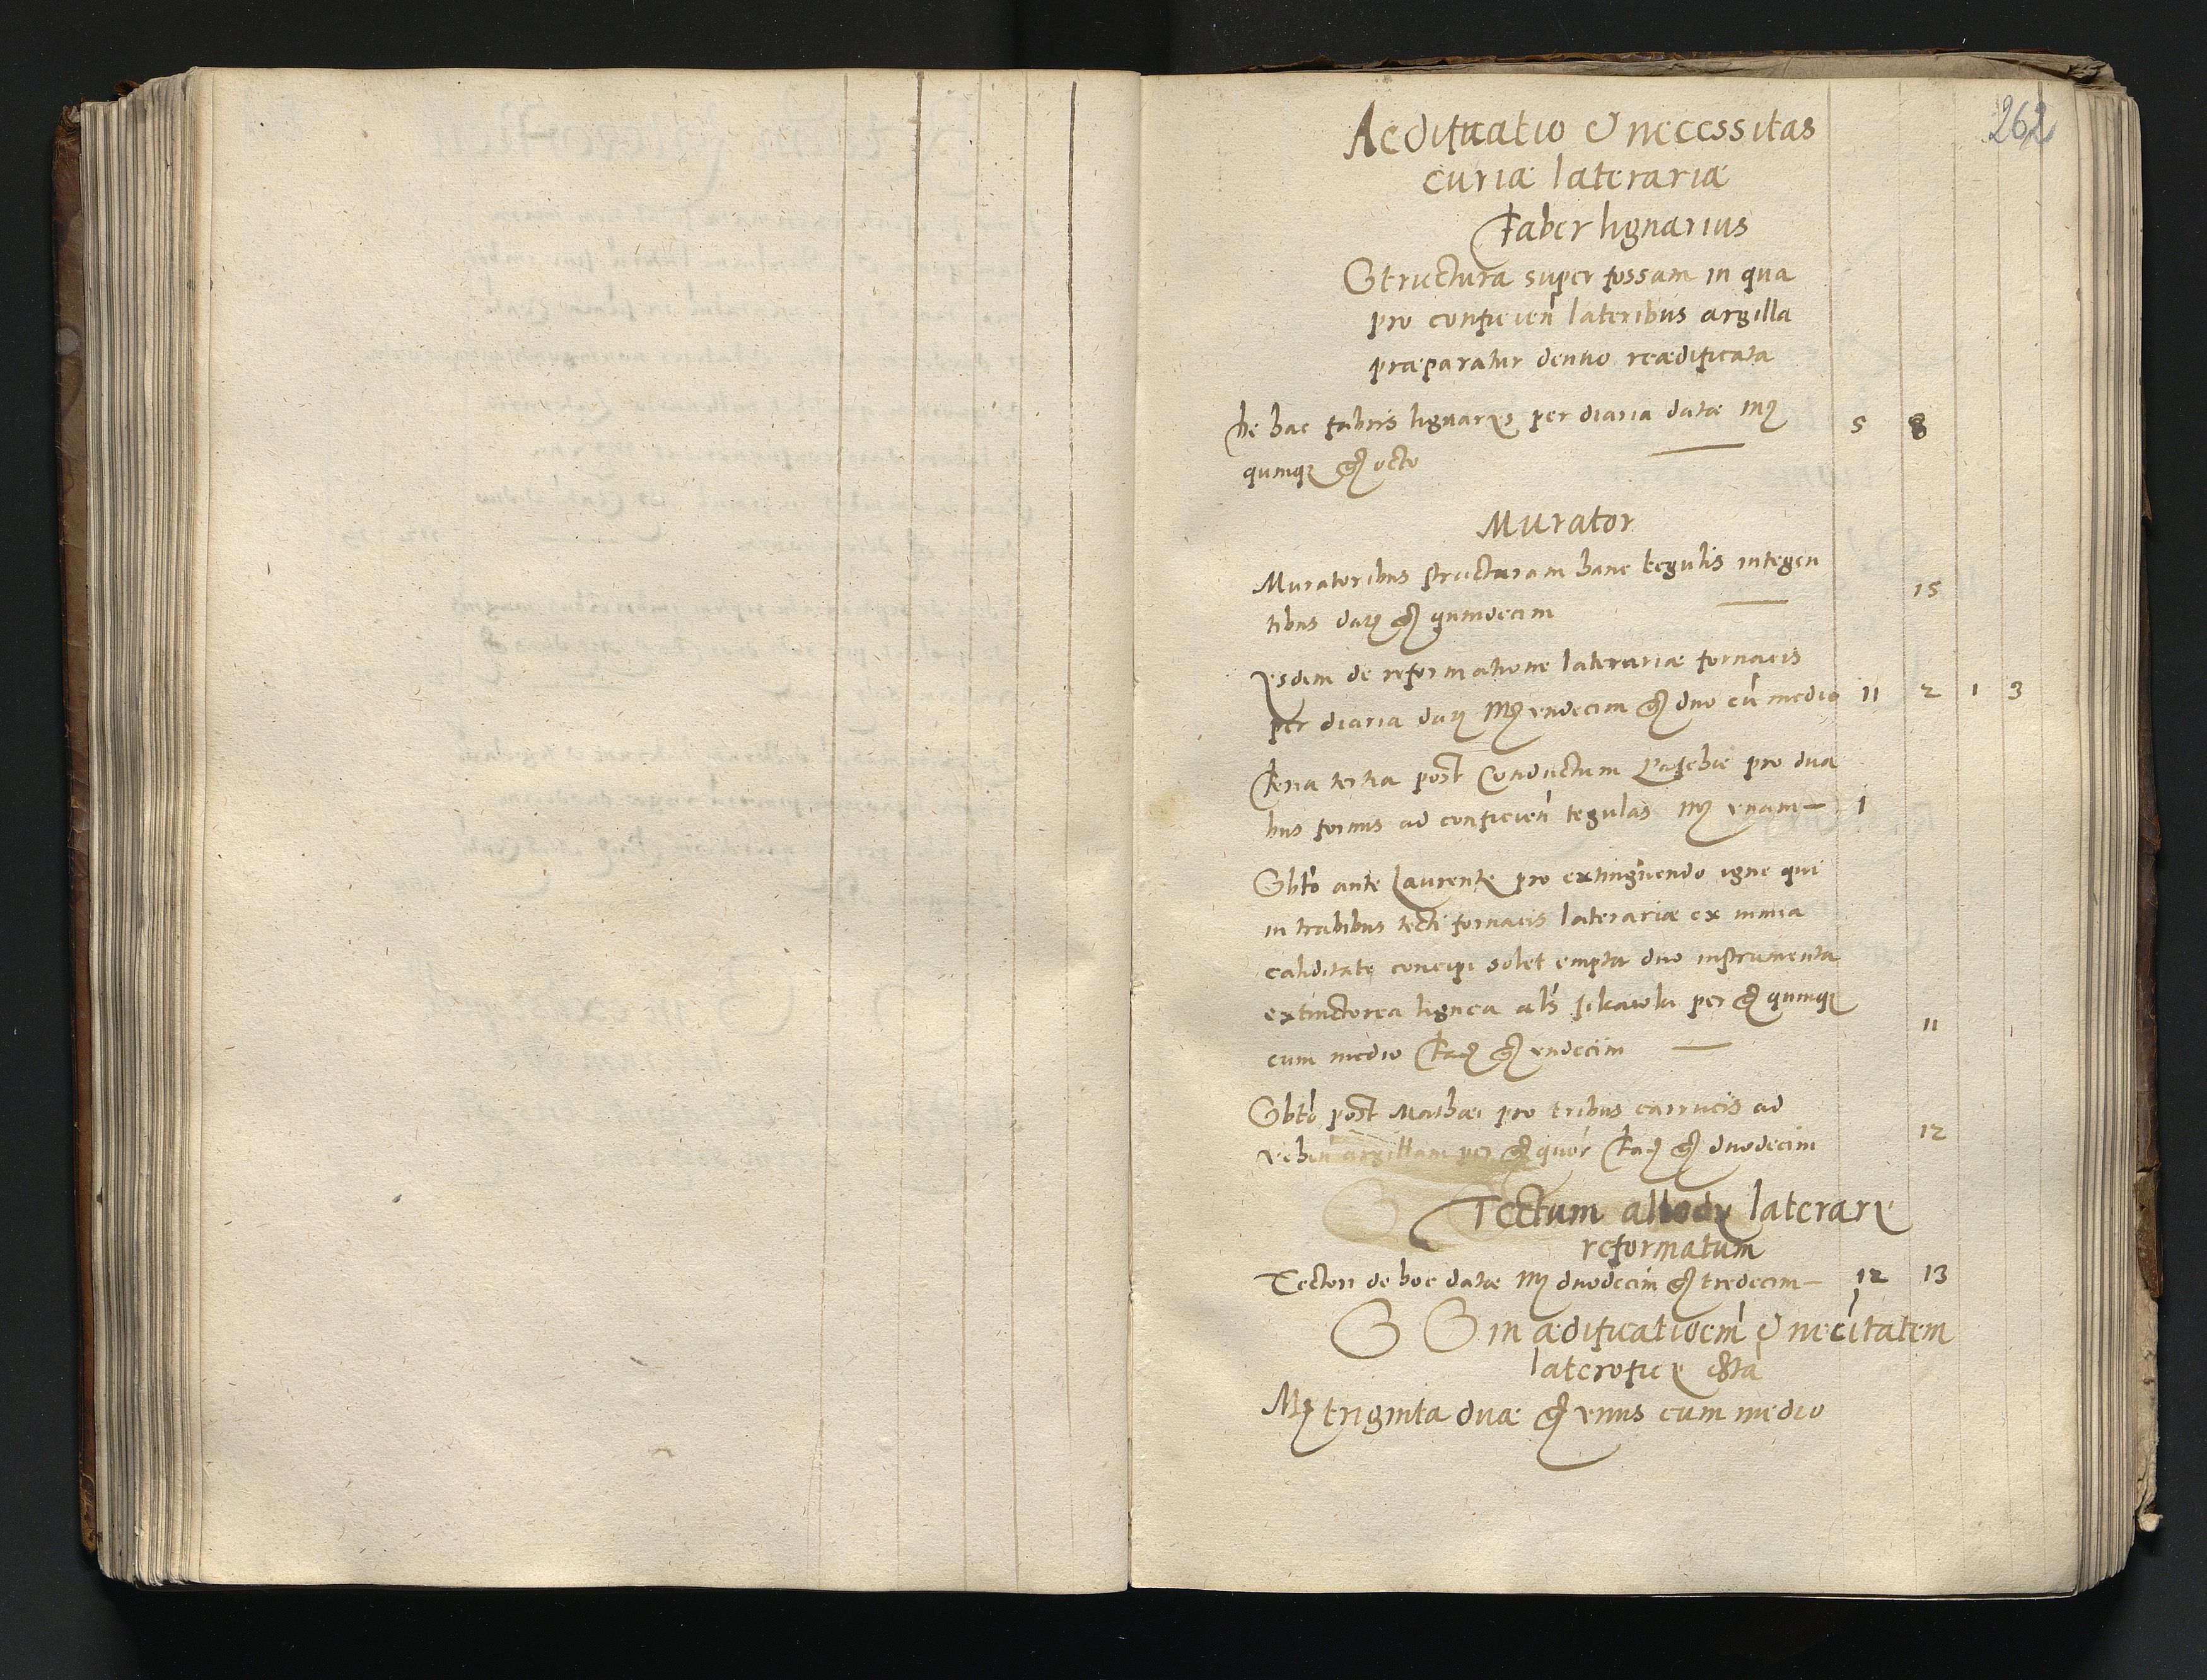 262
Aedificatio & necessitas
curiæ laterariæ
Faber lignarius
Structura super fossam in qua
pro conficien̄ lateribus argilla
præparatur denuo reædificata
De hac fabris lignarÿs per diaria datæ mꝝ 5 8
quinqꝫ gꝝ octo
Murator
Muratoribus structuram hanc tegulis integen
tibus daꝝ gꝝ quindecim 15
Ysdem de reformatione laterariæ fornacis
per diaria daꝝ Mꝝ vndecim gꝝ duo cū medio 11 2 1 3
Feria tertia post Conductum Paschæ pro dua
bus formis ad conficien̄ tegulas mꝝ vnam 1
Sbto ante Laurentÿ pro extinguendo igne qui
in trabibus tecti fornacis laterariæ ex nimia
caliditate concipi solet empta duo instrumenta
extinctorea lignea als sikawki per gꝝ quinqꝫ
cum medio Faꝝ gꝝ vndecim 11
Sbto post Mathæi pro tribus carrucis ad
vehen̄ argillam per gꝝ quor Faꝝ gꝝ duodecim 12
Tectum allodÿ laterarÿ
reformatum
Tectori de hoc datæ mꝝ duodecim gꝝ tredecim 12 13
S S in ædificatioem & necitatem
lateroficÿ
Mꝝ triginta duæ gꝝ vnus cum medio